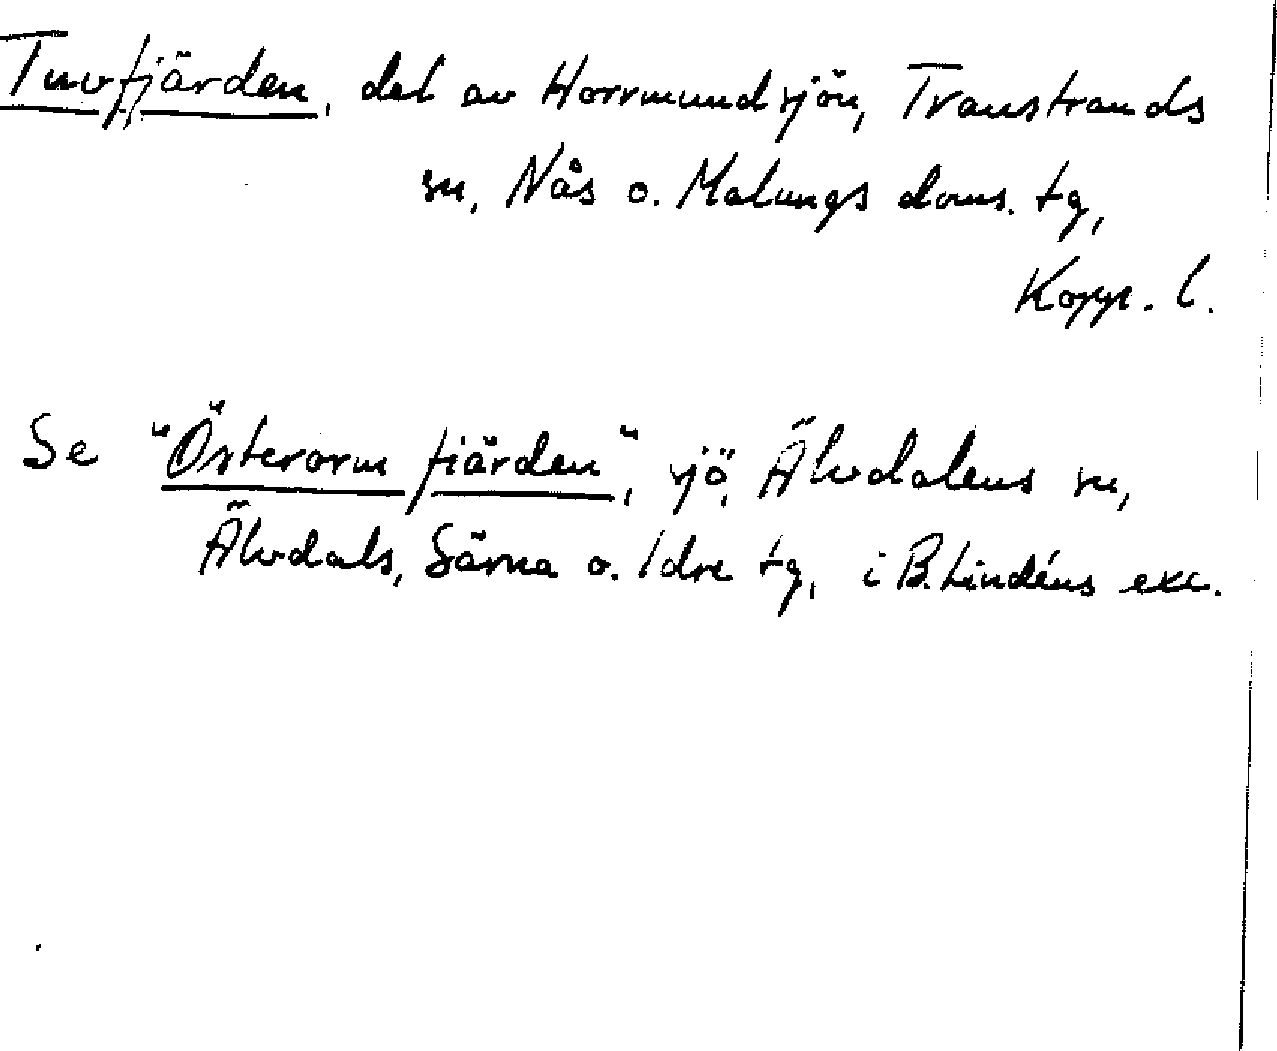 Tuvfjärden, del av Horrmundsjön, Transtrands
sn, Nås o. Malungs doms. tg,
Kopp. l.
Se "Österorm fjärden", sjö, Älvdalens sn,
Älvdals, Särna o. Idre tg, i B. Lindéns exc.